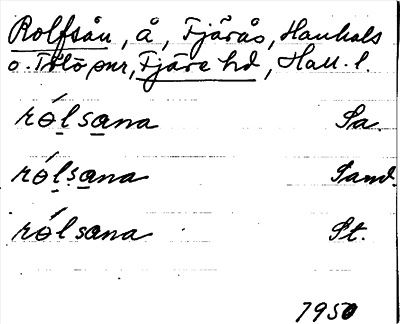 Rolfsån, å, Fjärås, Hanhals
o. Tölö snr, Fjäre hd, Hall. l.
rólsana Sa.
rólsana Sand.
rólsana St.
1950